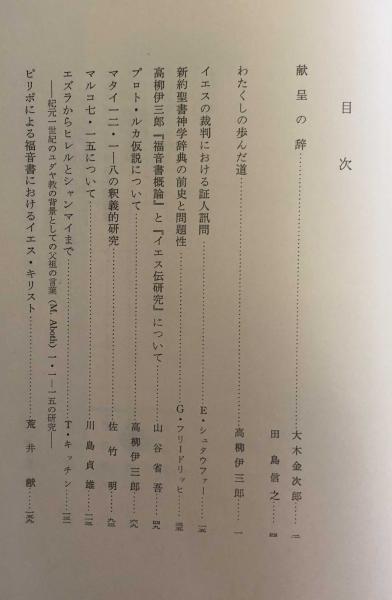 目次
献呈の辞……大木金次郎…二
田島信之…四
わたくしの歩んだ道……高柳伊三郎…一
イエスの裁判における証人訊問……E・シュタウファー…一五
新約聖書神学辞典の前史と問題性……G・フリードリッヒ…三五
高柳伊三郎『福音書概論』と『イエス伝研究』について……山谷省吾…四九
プロト・ルカ仮説について……高柳伊三郎…六九
マタイ一二・一―八の釈義的研究……佐竹明…九三
マルコ七・一五について……川島貞雄…一一三
エズラからヒレルとシャンマイまで……T・キッチン…一三一
――紀元一世紀のユダヤ教の背景としての父祖の言葉(M. Aboth)一・一―一五の研究――
ピリポによる福音書におけるイエス・キリスト……荒井献…一五九